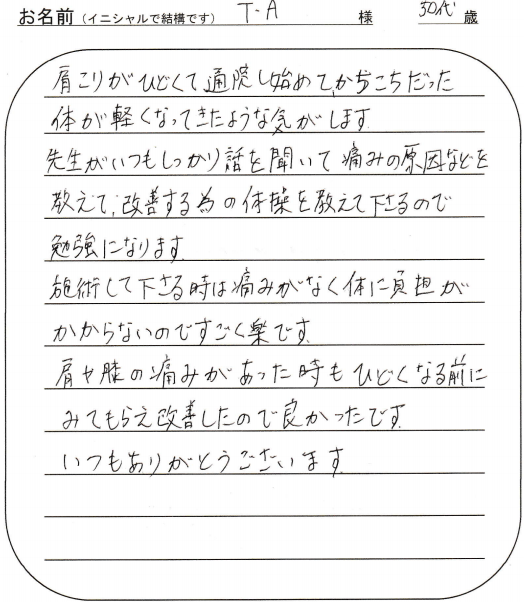 お名前（イニシャルで結構です） T・A 様 30代 歳
肩こりがひどくて通院し始めて、かちこちだった
体が軽くなってきたような気がします。
先生がいつもしっかり話を聞いて痛みの原因などを
教えて、改善する為の体操を教えて下さるので
勉強になります。
施術して下さる時は痛みがなく体に負担が
かからないのですごく楽です。
肩や膝の痛みがあった時もひどくなる前に
みてもらえ改善したので良かったです。
いつもありがとうございます。